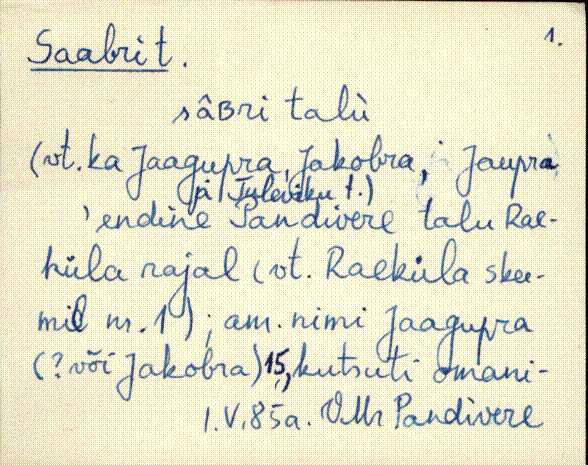 1.
Saabri t.
sâBri talù
(vt. ka Jaagupra, Jakobra, Jaupra
ja Tuleviku t.)
'endine Pandivere talu Rae-
küla rajal (vt. Raeküla skee-
mil nr. 1); am. nimi Jaagupra
(? või Jakobra) 15, kutsuti omani-
1.V.85a. VMr Pandivere